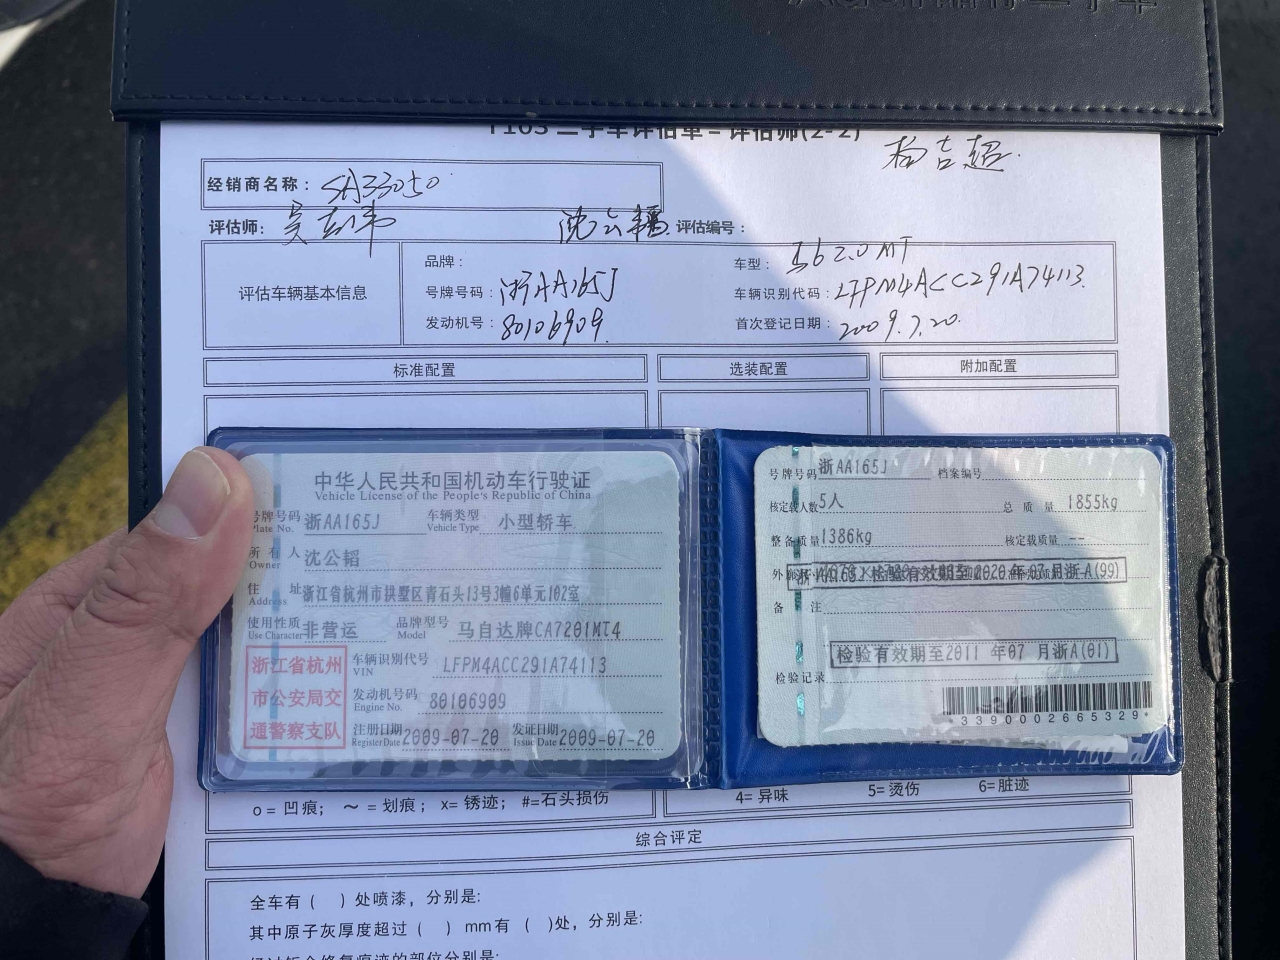 T103 二手车评估单-评估师(2-2)
杨吉超
经销商名称： SA33050
评估师：
评估编号：
评估车辆基本信息
品牌：
车型： 马6 2.0 MT
号牌号码： 浙AA165J
车辆识别代码： LFPM4ACC291A74113
发动机号： 80106909
首次登记日期： 2009.7.20
标准配置 选装配置 附加配置
中华人民共和国机动车行驶证
Vehicle License of the People's Republic of China
号牌号码 浙AA165J 车辆类型 小型轿车
Plate No. Vehicle Type
所有人 沈公韬
Owner
住址 浙江省杭州市拱墅区青石头13号3幢6单元102室
Address
使用性质 非营运 品牌型号 马自达牌CA7201MT4
Use Character Model
浙江省杭州
市公安局交
通警察支队
车辆识别代号 LFPM4ACC291A74113
VIN
发动机号码 80106909
Engine No.
注册日期 2009-07-20 发证日期 2009-07-20
Register Date Issue Date
号牌号码 浙AA165J 档案编号
核定载人数 5人 总质量 1855kg
整备质量 1386kg 核定载质量 --
浙AA165J 检验有效期至2020年07月浙A(99)
备注
检验有效期至2011年07月浙A(01)
检验记录
*3390002665329*
o=凹痕； ～=划痕； x=锈迹； #=石头损伤
4=异味 5=烫伤 6=脏迹
综合评定
全车有（ ）处喷漆，分别是：
其中原子灰厚度超过（ ）mm有（ )处，分别是：